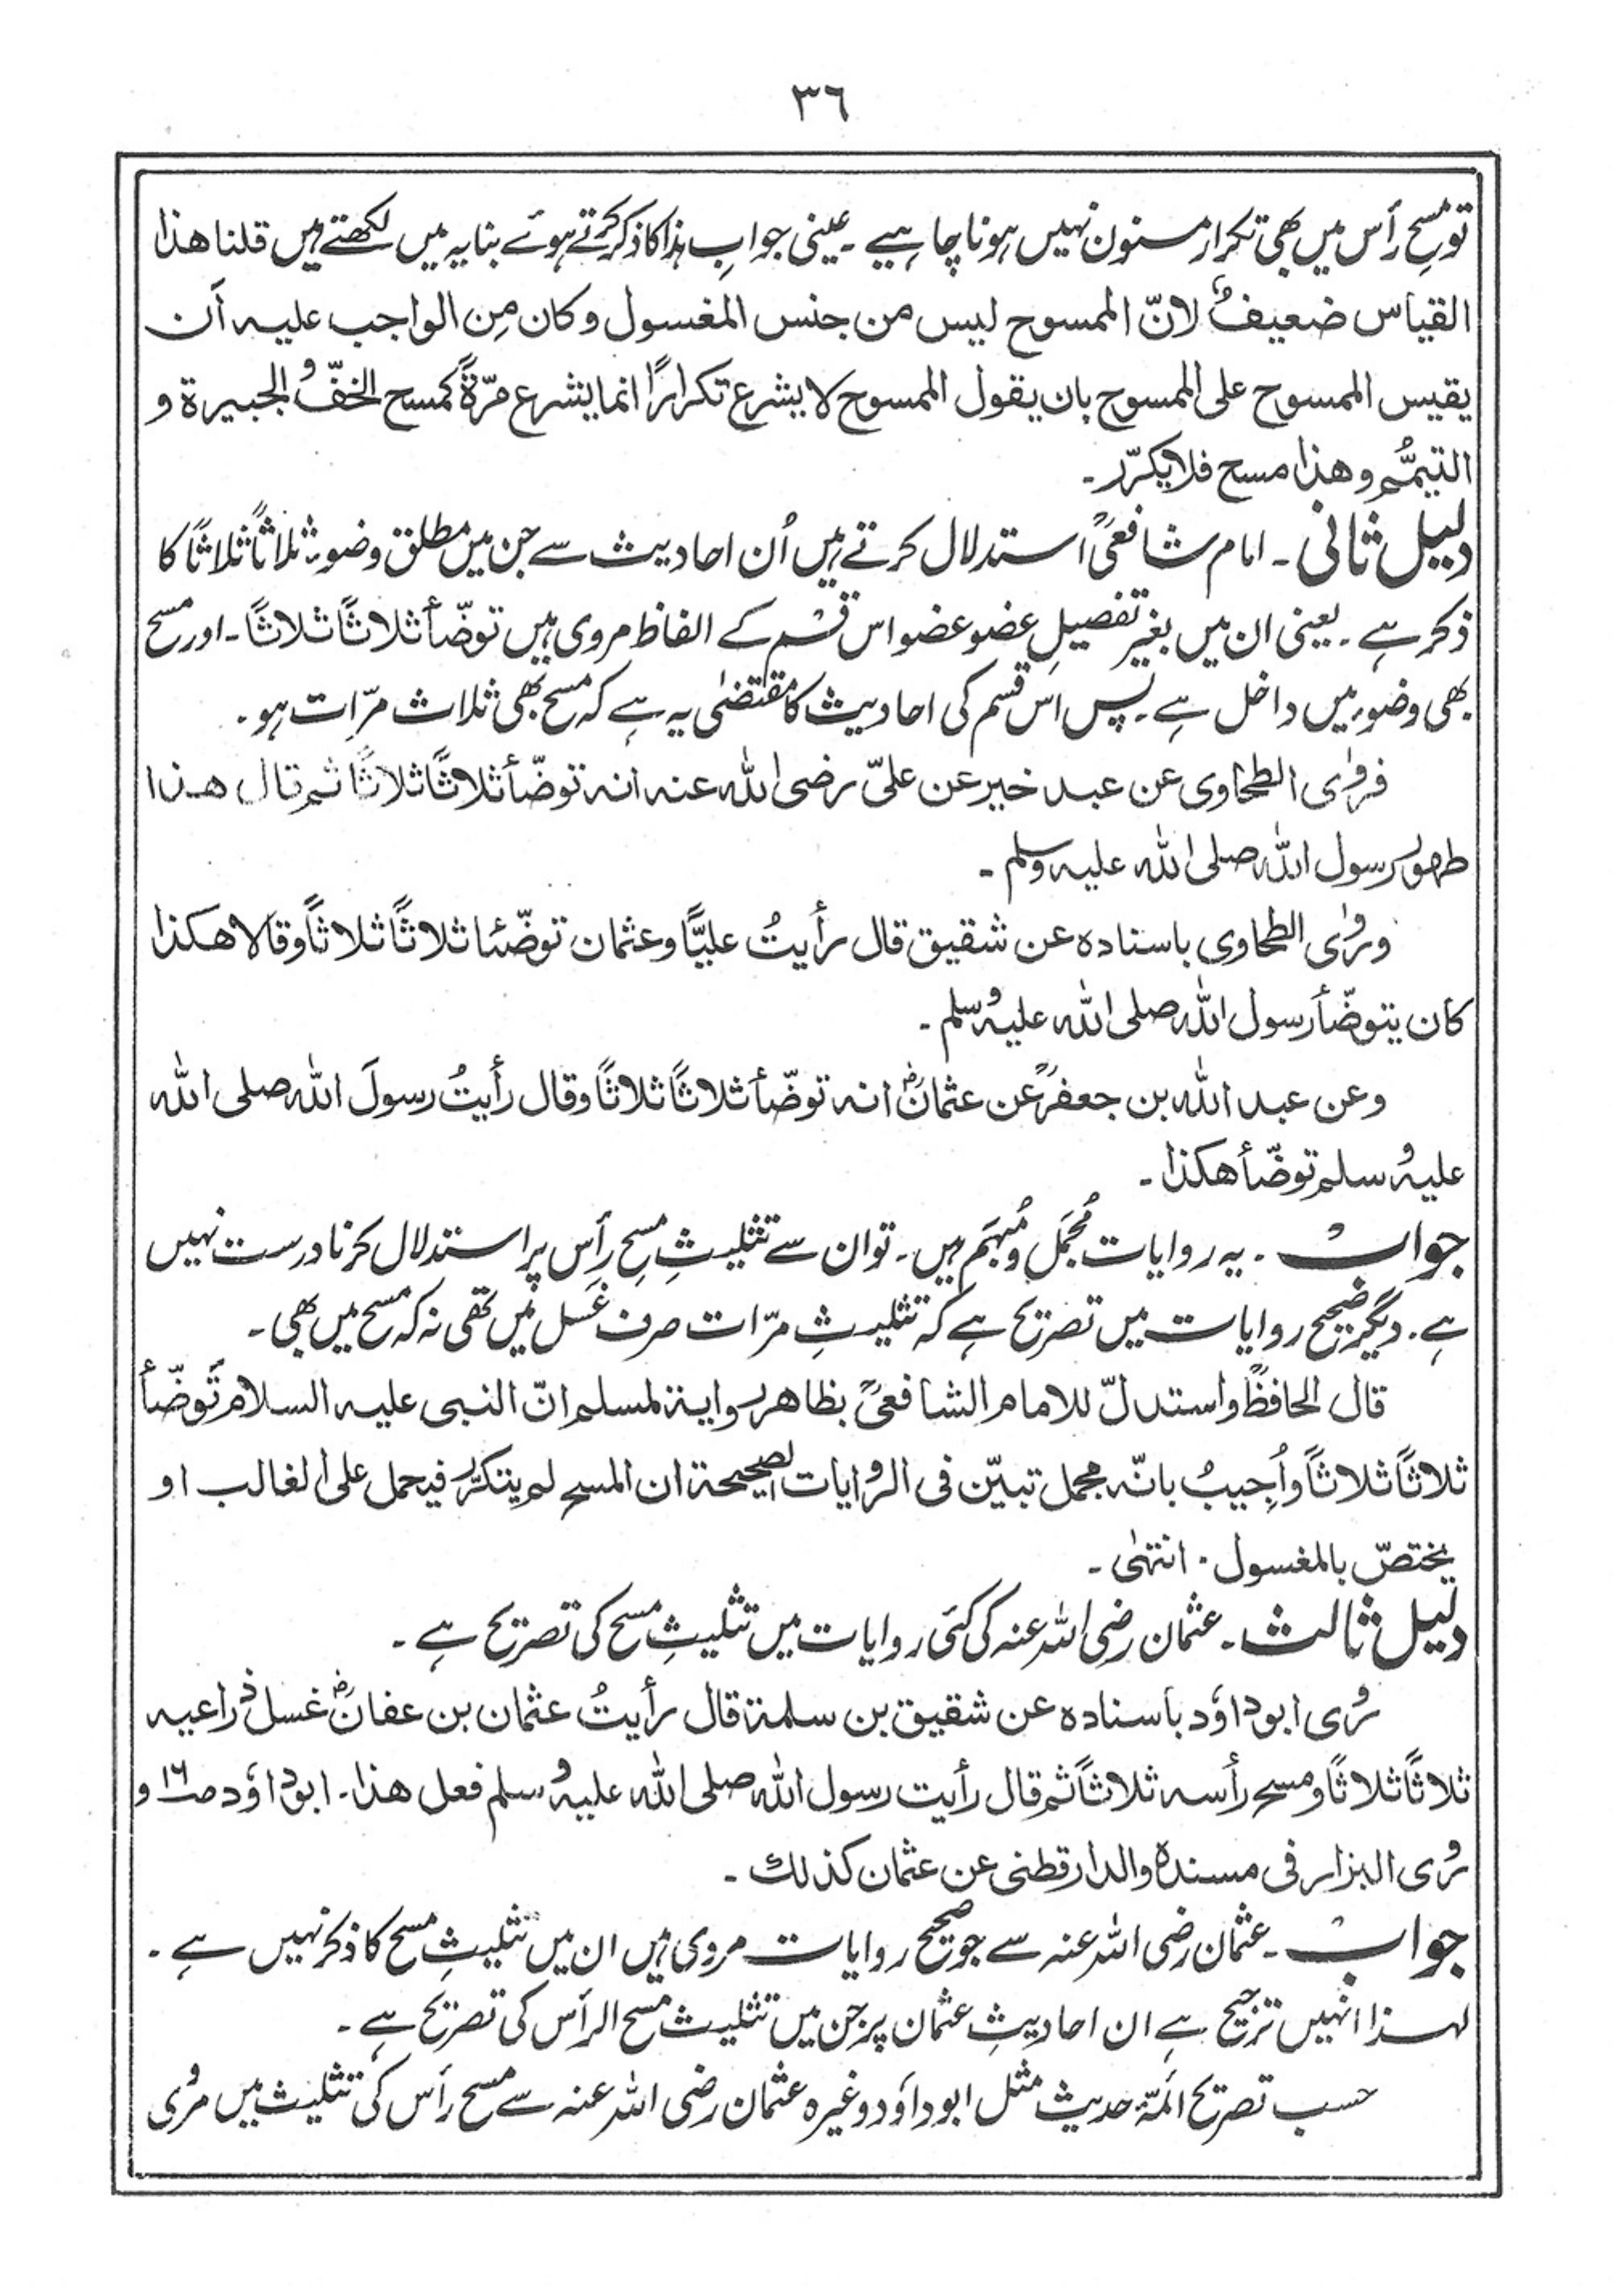 ٣٦
تو مسحِ رأس میں بھی تکرار مسنون نہیں ہونا چاہیے ۔ عینی جوابِ ہذا کا ذکر کرتے ہوئے بنایہ میں لکھتے ہیں قلنا هذا
القیاس ضعیفٌ لانّ الممسوح لیس من جنس المغسول وکان مِن الواجب علیہ اَن
یقیس الممسوح علی الممسوح بان یقول الممسوح لا یشرع تکرارًا انما یشرع مرّةً کمسح الخفّ والجبیرة و
التیمُّم وهذا مسح فلا یکرّر ۔
دلیل ثانی ۔ امام شافعیؒ استدلال کرتے ہیں اُن احادیث سے جن میں مطلق وضوء ثلاثاً ثلاثاً کا
ذکر ہے ۔ یعنی ان میں بغیر تفصیلِ عضو عضو اس قسم کے الفاظ مروی ہیں توضّأ ثلاثًا ثلاثًا ۔ اور مسح
بھی وضوء میں داخل ہے ۔ پس اس قسم کی احادیث کا مقتضٰی یہ ہے کہ مسح بھی ثلاث مرّات ہو ۔
فروٰی الطحاوی عن عبد خیر عن علیّ رضی اللہ عنہ انہ توضّأ ثلاثًا ثلاثًا ثم قال هذا
طهور رسول اللہ صلی اللہ علیہ وسلم ۔
وروٰی الطحاوی باسنادہ عن شقیق قال رأیتُ علیًّا وعثمان توضّئا ثلاثًا ثلاثًا وقالا هکذا
کان یتوضّأ رسول اللہ صلی اللہ علیہ وسلم ۔
وعن عبد اللہ بن جعفرؒ عن عثمانؓ انہ توضّأ ثلاثًا ثلاثًا وقال رأیتُ رسولَ اللہ صلی اللہ
علیہ وسلم توضّأ هکذا ۔
جواب ۔ یہ روایات مُجمَل و مُبہَم ہیں ۔ تو ان سے تثلیثِ مسحِ رأس پر استدلال کرنا درست نہیں
ہے ۔ دیگر صحیح روایات میں تصریح ہے کہ تثلیثِ مرّات صرف غَسل میں تھی نہ کہ مسح میں بھی ۔
قال الحافظؒ واستدلّ للامام الشافعیؒ بظاهر روایة لمسلم انّ النبی علیہ السلام توضّأ
ثلاثًا ثلاثًا واُجیبُ بانّہ مجمل تبیّن فی الروایات الصحیحة ان المسح لم یتکرّر فیحمل علی الغالب او
یختصّ بالمغسول ۔ انتہٰی ۔
دلیل ثالث ۔ عثمان رضی اللہ عنہ کی کئی روایات میں تثلیثِ مسح کی تصریح ہے ۔
روی ابوداؤد بأسنادہ عن شقیق بن سلمة قال رأیتُ عثمان بن عفانؓ غسل ذراعیہ
ثلاثًا ثلاثًا ومسح رأسہ ثلاثًا ثم قال رأیت رسول اللہ صلی اللہ علیہ وسلم فعل هذا ۔ ابوداؤد صـ١٦ و
روی البزار فی مسندہ والدارقطنی عن عثمان کذلك ۔
جواب ۔ عثمان رضی اللہ عنہ سے جو صحیح روایات مروی ہیں ان میں تثلیثِ مسح کا ذکر نہیں ہے ۔
لہذا انہیں ترجیح ہے ان احادیثِ عثمان پر جن میں تثلیث مسح الرأس کی تصریح ہے ۔
حسب تصریح ائمّۂ حدیث مثل ابوداؤد وغیرہ عثمان رضی اللہ عنہ سے مسح رأس کی تثلیث میں مروی